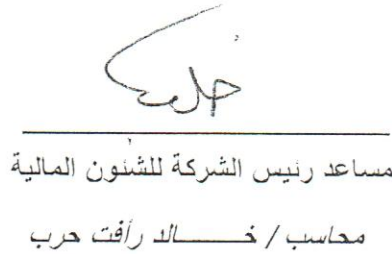 مساعد رئيس الشركة للشئون المالية
محاسب / خـــــالد رأفت حرب